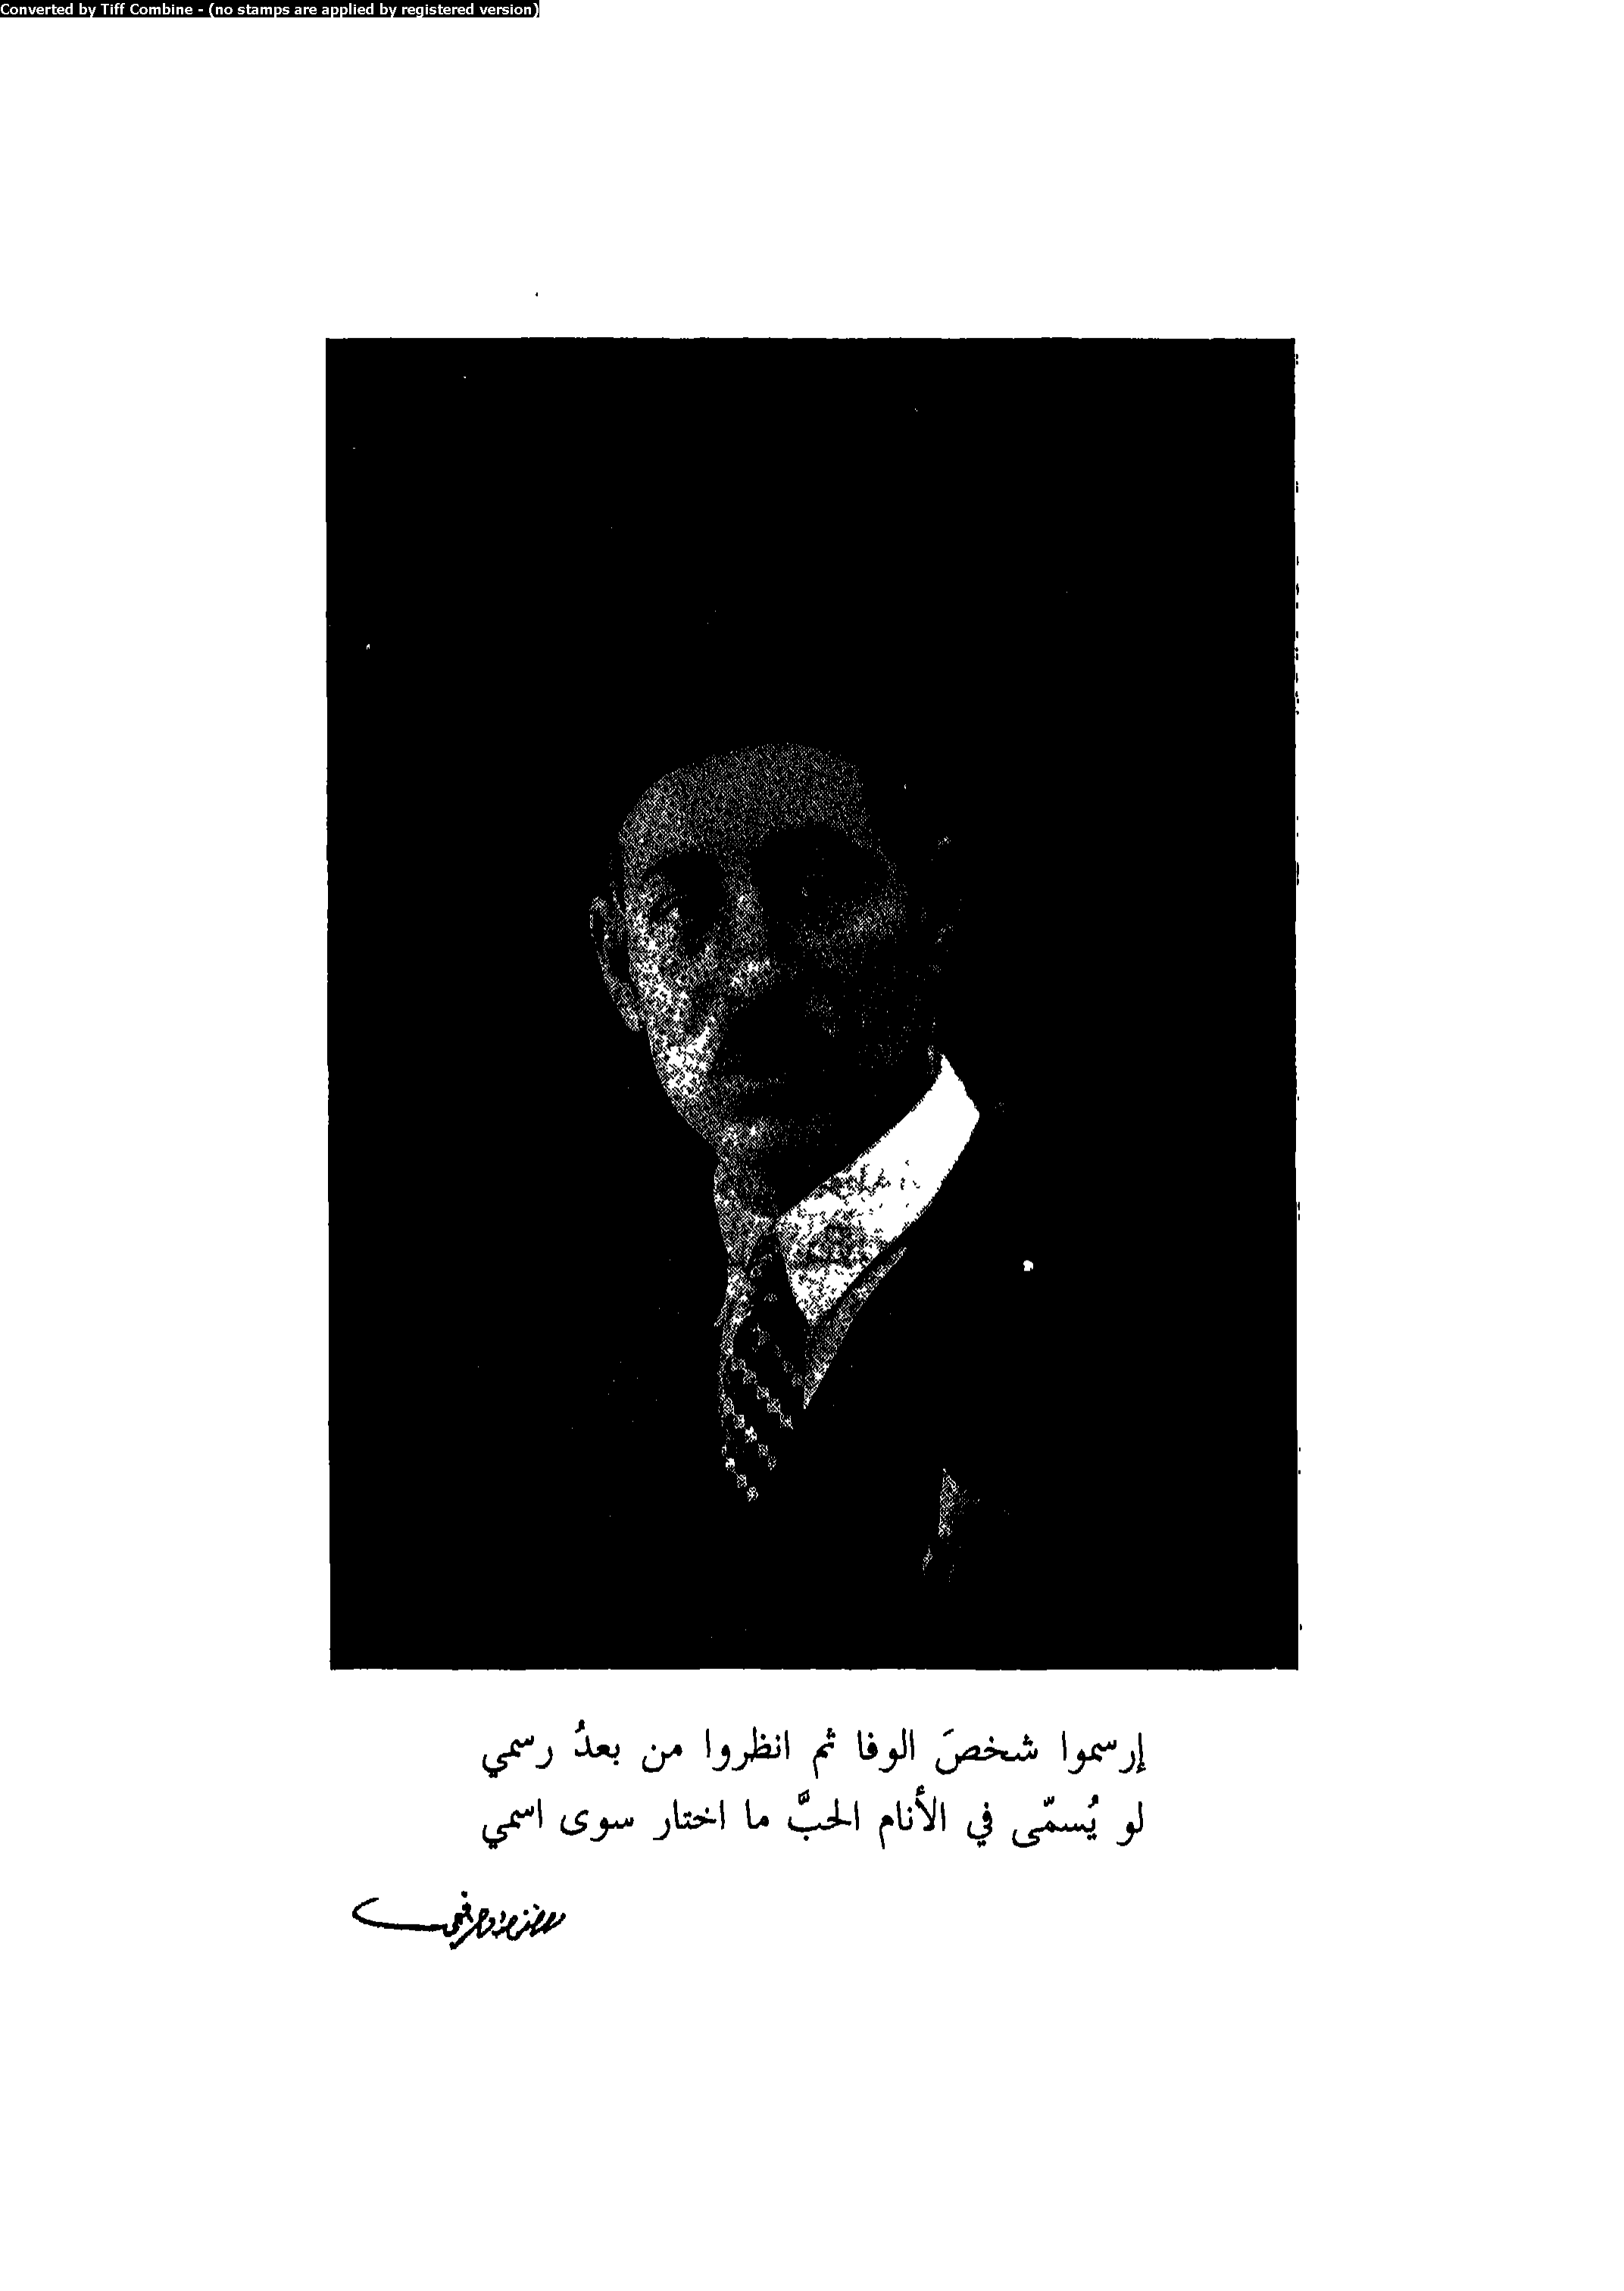 Converted by Tiff Combine - (no stamps are applied by registered version)
إرسموا شخصَ الوفا ثم انظروا من بعدُ رسمي
لو يُسمّى في الأنام الحبَّ ما اختار سوى اسمي